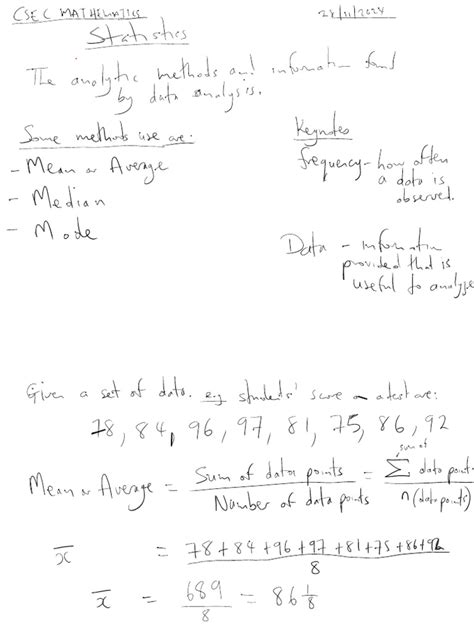 CSEC MATHEMATICS 28/11/2024
Statistics
The analytic methods and information found
by data analysis.
Some methods use are:
- Mean or Average
- Median
- Mode
Keynotes
frequency - how often
a data is
observed.
Data - information
provided that is
useful to analyse
Given a set of data. e.g students' score on a test are:
78, 84, 96, 97, 81, 75, 86, 92
Mean or Average = Sum of data points / Number of data points = sum of ∑ data point. / n (data points)
x̄ = 78+84+96+97+81+75+86+92 / 8
x̄ = 689 / 8 = 86 1/8